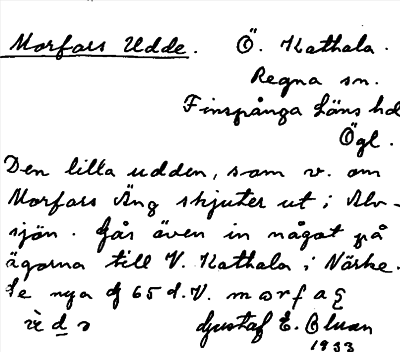 Morfars Udde. Ö. Kathala.
Regna sn.
Finspånga läns hd
Ögl.
Den lilla udden, som v. om
Morfars Äng skjuter ut i Alv-
sjön. Går även in något på
ägorna till V. Kathala i Närke.
Se nya 65 d.V. morfaʃ
Gustaf E. Bluan
1933